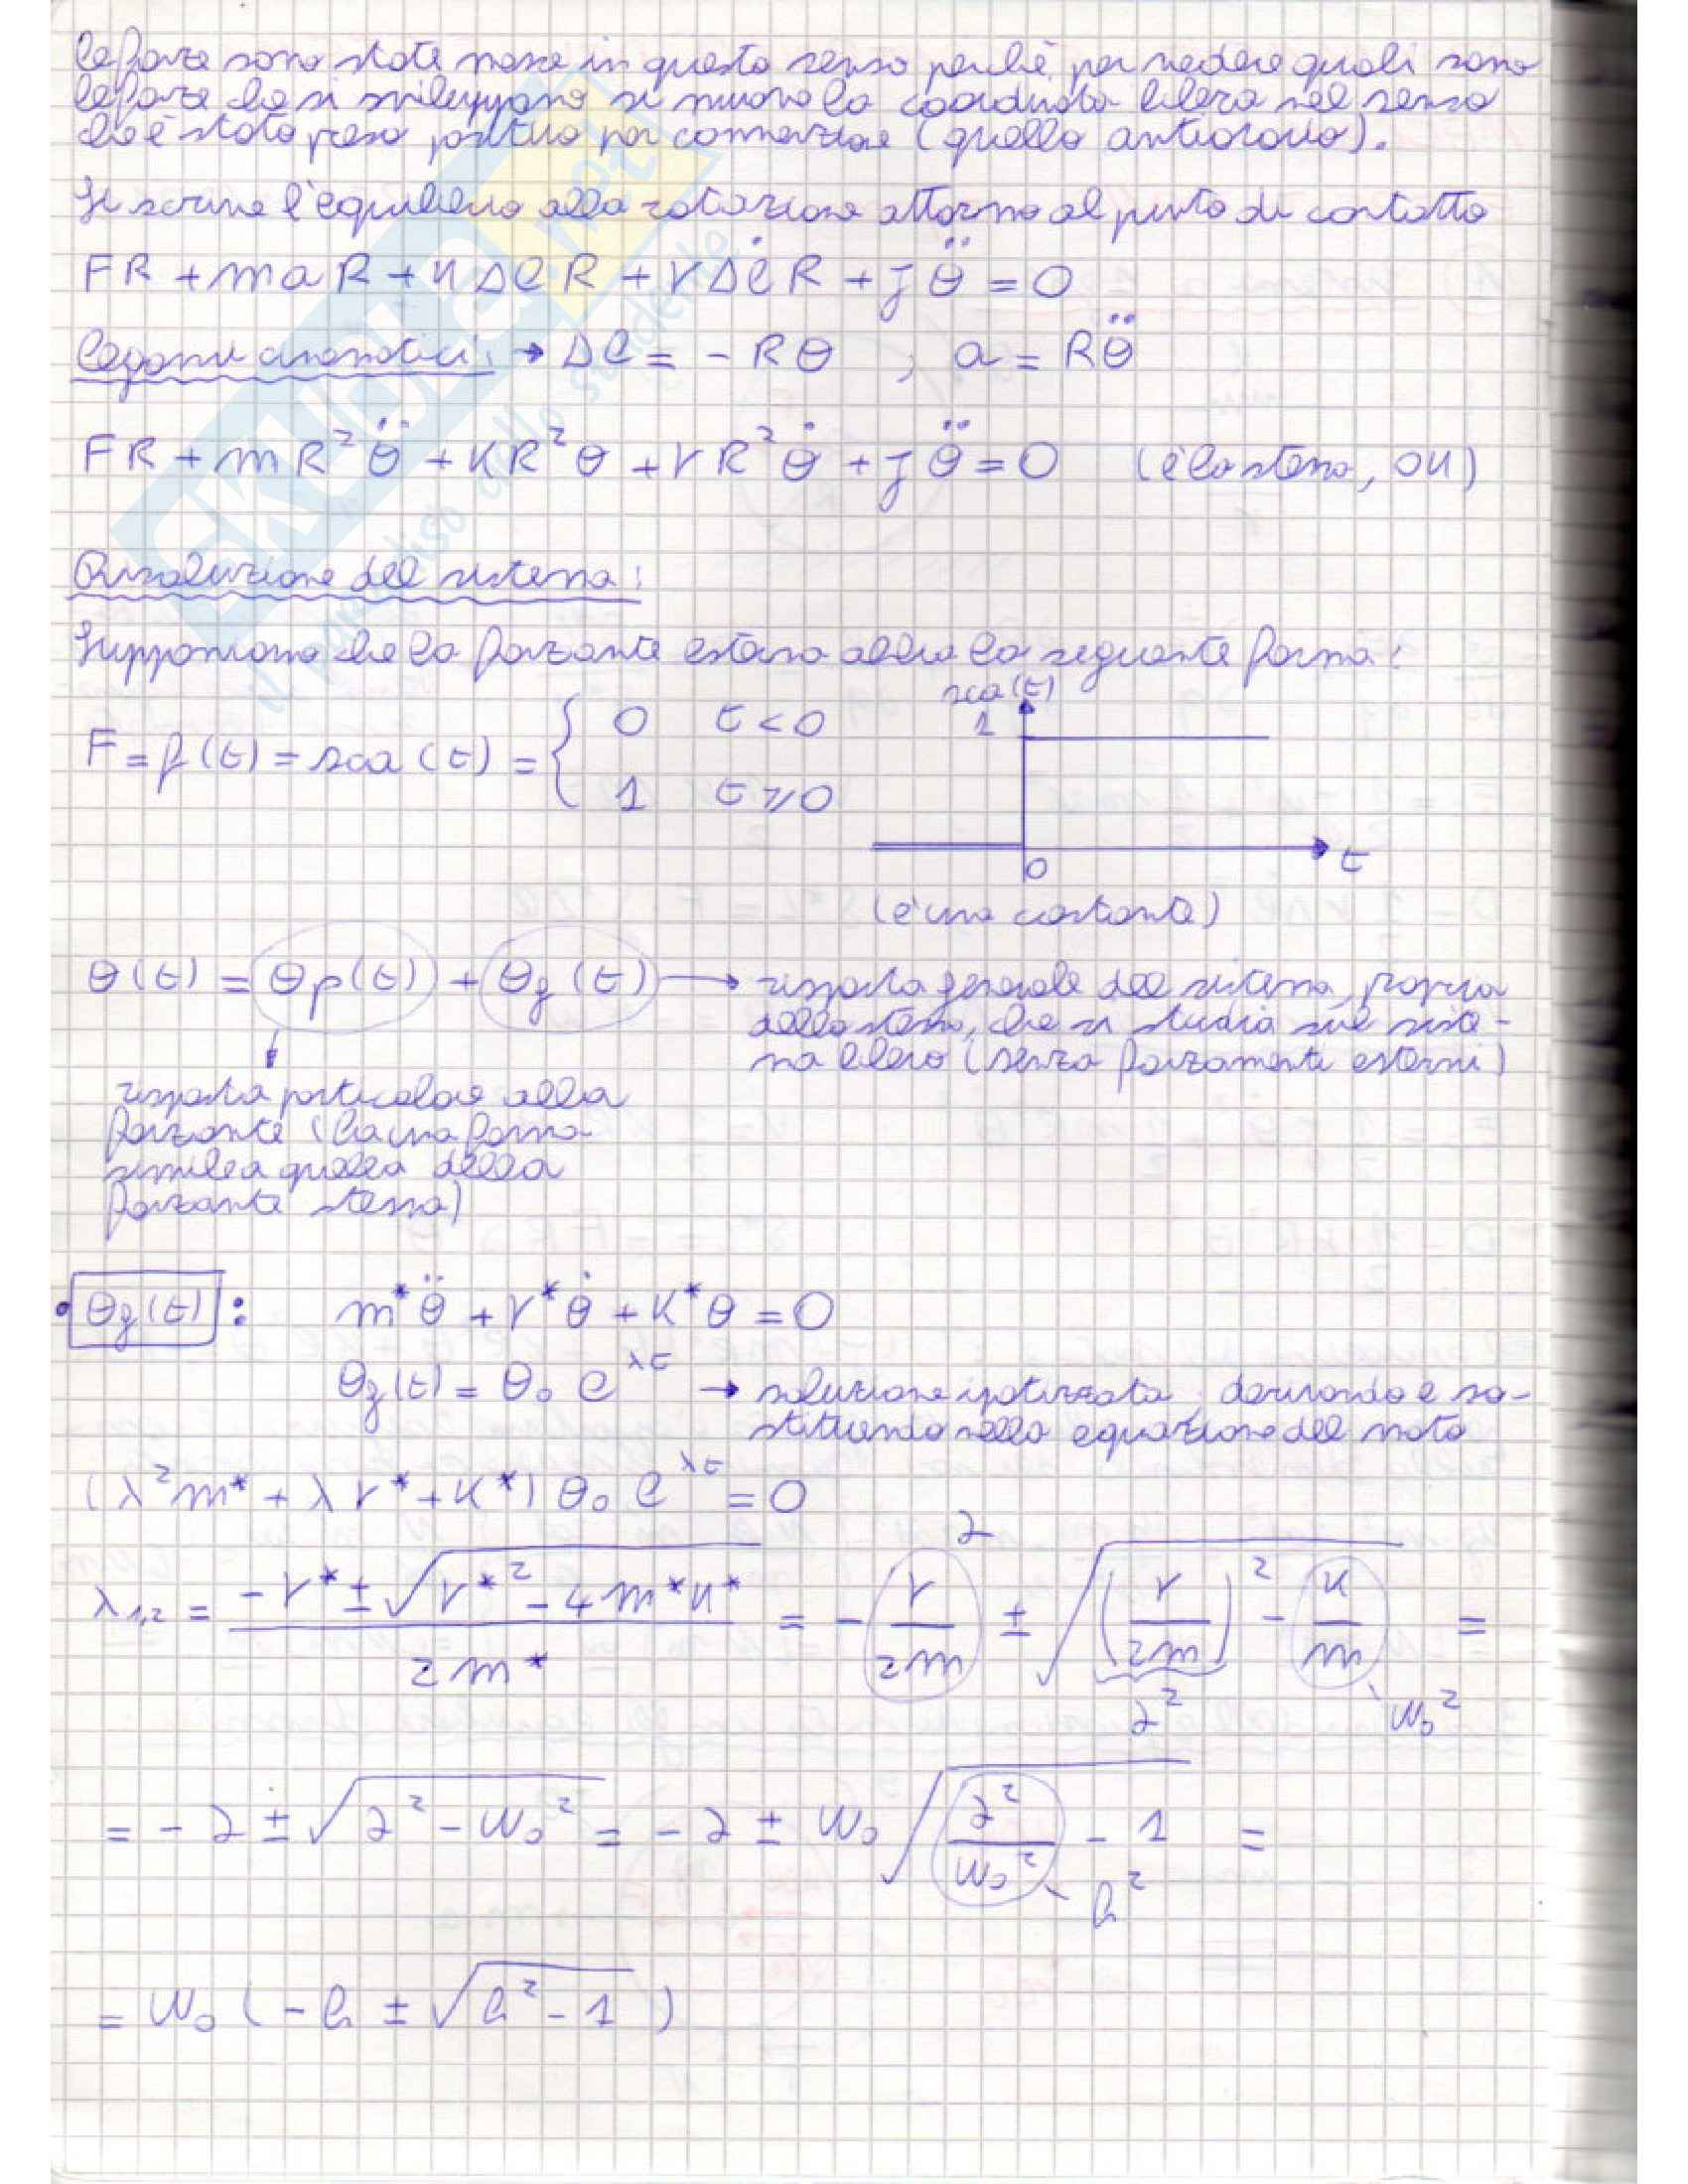 le forze sono state messe in questo senso perchè per vedere quali sono
le forze che si sviluppano si muove la coordinata libera nel senso
che è stato preso positivo per convenzione (quello antiorario).
Si scrive l'equilibrio alla rotazione attorno al punto di contatto
FR + maR + kΔlR + rΔl̇R + Jθ̈ = 0
legami cinematici: → Δl = - Rθ , a = Rθ̈
FR + mR²θ̈ + kR²θ + rR²θ̇ + Jθ̈ = 0 (è la stessa, OK)
Risoluzione del sistema:
Supponiamo che la forzante esterna abbia la seguente forma:
sca(t)
F = f(t) = sca(t) = { 0 t < 0
1 t ≥ 0
1
0
t
(è una costante)
θ(t) = θp(t) + θg(t) → risposta generale del sistema, propria
dello stesso, che si studia sul siste-
ma libero (senza forzamenti esterni)
risposta particolare alla
forzante (ha una forma
simile a quella della
forzante stessa)
• θg(t) : m*θ̈ + r*θ̇ + k*θ = 0
θg(t) = θ₀ e^λt → soluzione ipotizzata, derivando e so-
stituendo nella equazione del moto
(λ²m* + λr* + k*) θ₀ e^λt = 0
λ₁,₂ = (-r* ± √(r*² - 4m*k*)) / 2m* = - r/2m ± √((r/2m)² - k/m) =
α
α²
ω₀²
= - α ± √(α² - ω₀²) = - α ± ω₀ √(α²/ω₀² - 1) =
h²
= ω₀ (- h ± √(h² - 1))
SKUOLA.net
il paradiso dello studente